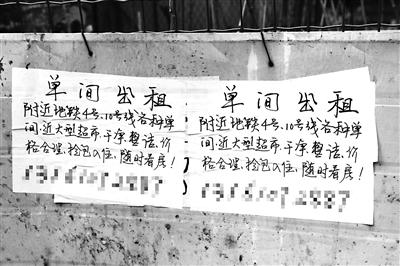 单间出租
附近地铁4号、10号线各种单
间.近大型超市.干净整洁.价
格合理.拎包入住,随时看房!
单间出租
附近地铁4号、10号线各种单
间.近大型超市.干净整洁.价
格合理.拎包入住,随时看房!